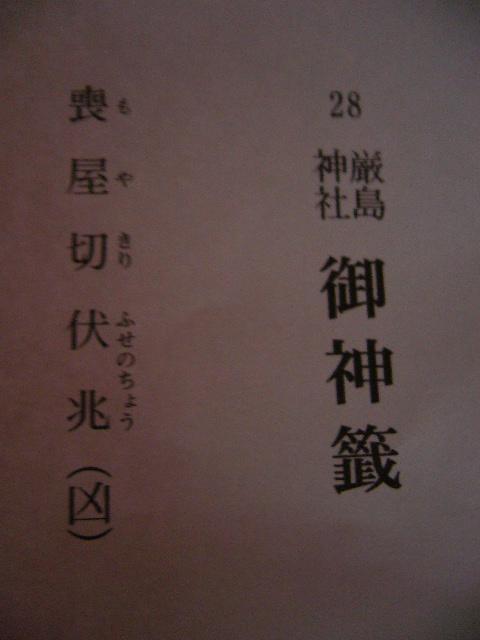 28
厳島
神社
御神籤
喪屋切伏兆(凶)
もやきりふせのちょう